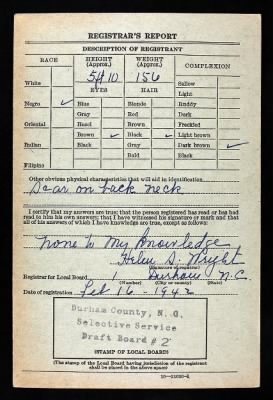 REGISTRAR'S REPORT
DESCRIPTION OF REGISTRANT
RACE HEIGHT (Approx.) WEIGHT (Approx.) COMPLEXION
5ft 10 156
White EYES HAIR Sallow
Light
Negro ✓ Blue Blonde Ruddy
Gray Red Dark
Oriental Hazel Brown Freckled
Brown ✓ Black ✓ Light brown
Indian Black Gray Dark brown ✓
Bald Black
Filipino
Other obvious physical characteristics that will aid in identification
Scar on back neck
I certify that my answers are true; that the person registered has read or has had
read to him his own answers; that I have witnessed his signature or mark and that
all of his answers of which I have knowledge are true, except as follows:
None to My Knowledge
Helen S. Wright
(Signature of registrar)
Registrar for Local Board 1 Durham N.C.
(Number) (City or county) (State)
Date of registration Feb 16 - 1942
Durham County, N.C.
Selective Service
Draft Board # 2
(STAMP OF LOCAL BOARD)
(The stamp of the Local Board having jurisdiction of the registrant
shall be placed in the above space)